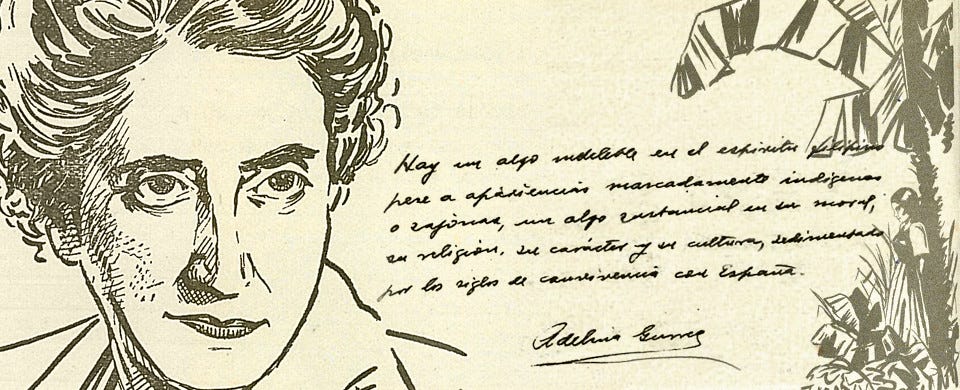 Hay un algo indeleble en el espíritu filipino
pese a apariencias marcadamente indígenas
o sajonas, un algo sustancial en su moral,
su religión, su carácter y su cultura, sedimentado
por los siglos de convivencia con España.
Adelina Gurrea